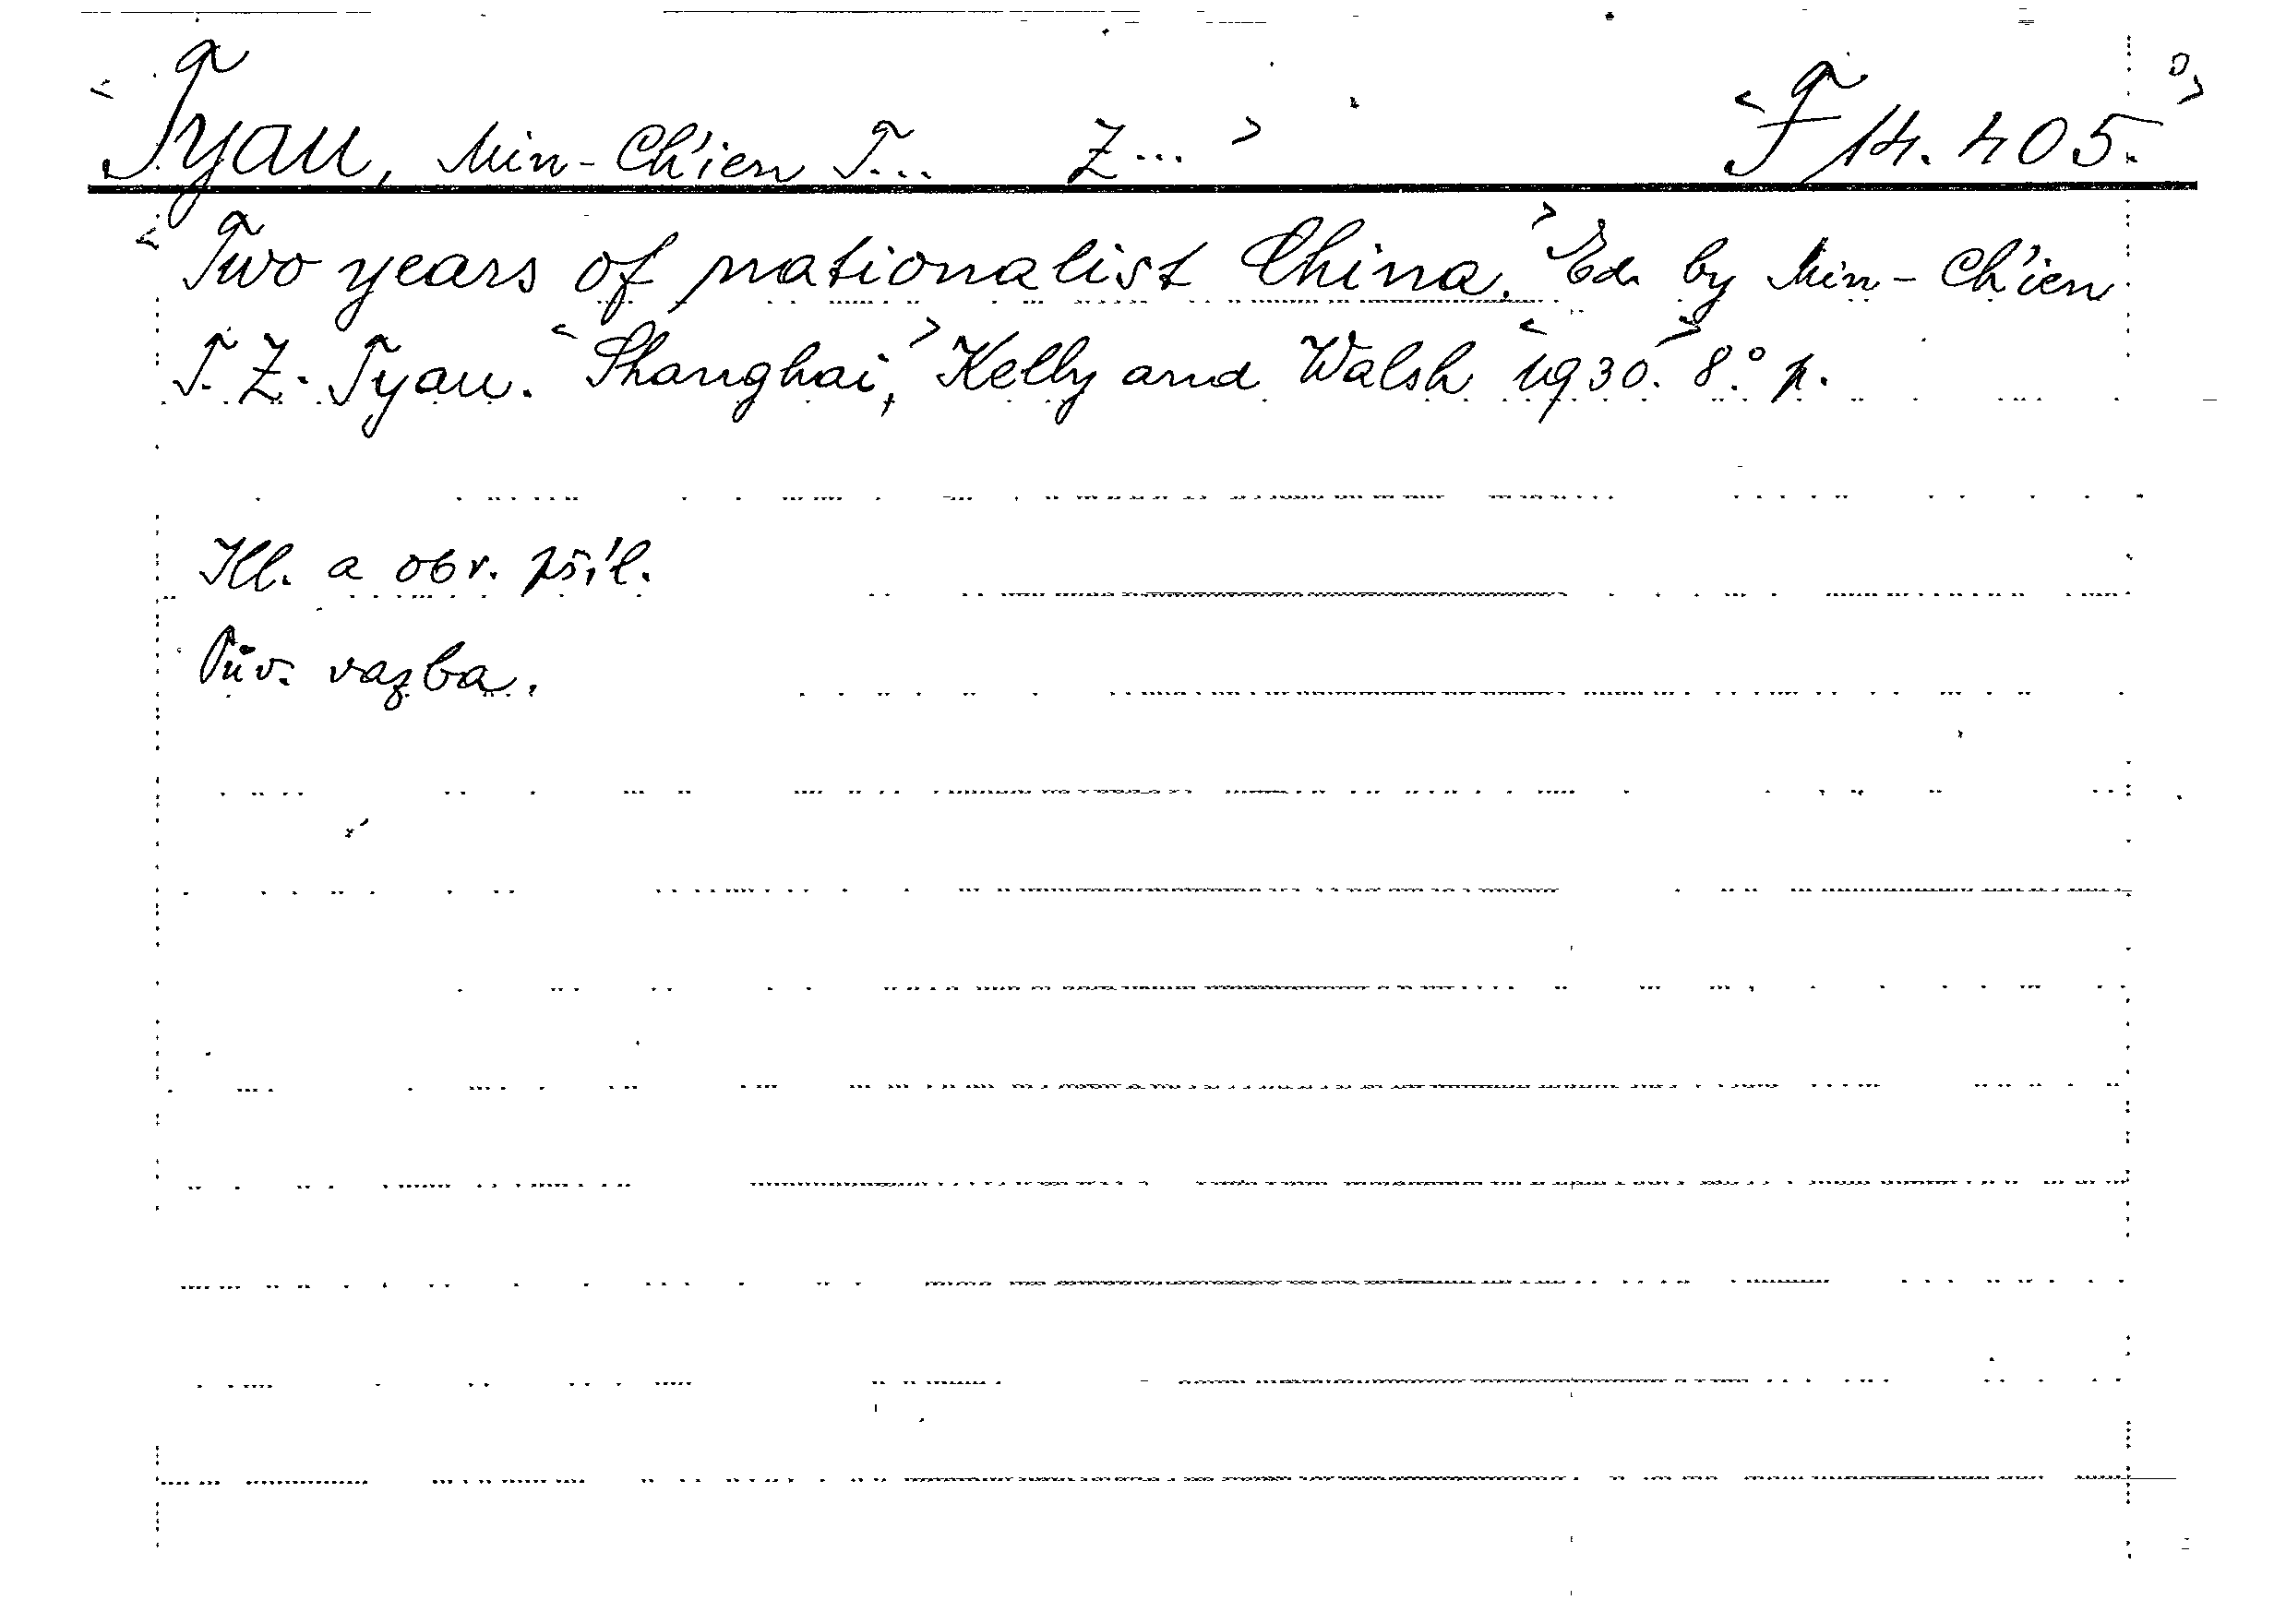 <Tyau, Min-Ch'ien T... Z...> <F 14.405.>
<Two years of nationalist China.> Ed. by Min-Ch'ien
T. Z. Tyau. <Shanghai,> Kelly and Walsh <1930.> 8.° p.
Ill. a obr. příl.
Pův. vazba.